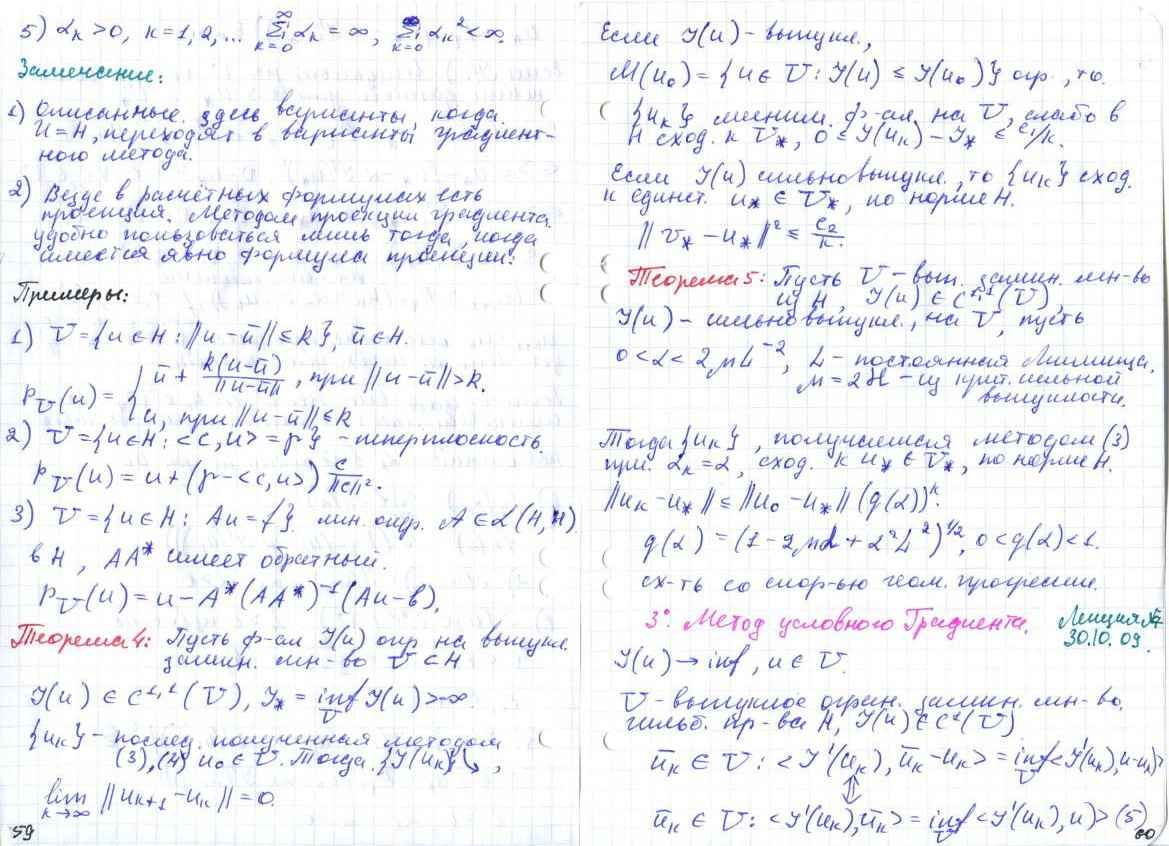 5) αₖ > 0, k = 1, 2, ... ∑_{k=0}^{∞} αₖ = ∞, ∑_{k=0}^{∞} αₖ² < ∞.
Замечание:
1) Описанные здесь варианты, когда
U = H, переходят в варианты градиент-
ного метода.
2) Везде в расчётных формулах есть
проекция. Методом проекции градиента
удобно пользоваться лишь тогда, когда
имеется явно формула проекции:
Примеры:
1) U = {u ∈ H : ||u - ū|| ≤ R}, ū ∈ H.
P_U(u) = { ū + R(u - ū)/||u - ū||, при ||u - ū|| > R.
u, при ||u - ū|| ≤ R
2) U = {u ∈ H : <c, u> = γ} - гиперплоскость.
P_U(u) = u + (γ - <c, u>) c/||c||².
3) U = {u ∈ H : Au = f} лин. огр. A ∈ L(H, H)
в H, AA* имеет обратный.
P_U(u) = u - A*(AA*)⁻¹(Au - b).
Теорема 4: Пусть ф-ал J(u) опр на выпукл.
замкн. мн-во U ⊂ H
J(u) ∈ C^{1,1}(U), J_* = inf_U J(u) > -∞
{uₖ} - послед. полученная методом
(3), (4) u₀ ∈ U. Тогда {J(uₖ)}↘,
lim_{k→∞} ||uₖ₊₁ - uₖ|| = 0.
59
Если J(u) - выпукл.,
M(u₀) = {u ∈ U : J(u) ≤ J(u₀)} огр., то
{uₖ} миним. ф-ал на U, слабо в
H сход. к U_*, 0 ≤ J(uₖ) - J_* ≤ c₁/k.
Если J(u) сильновыпукл., то {uₖ} сход.
к единст. u_* ∈ U_*, по норме H.
||v_* - u_*||² ≤ c₂/k.
Теорема 5: Пусть U - вып. замкн. мн-во
из H, J(u) ∈ C^{1,1}(U),
J(u) - сильновыпукл., на U, пусть
0 < α < 2μL⁻², L - постоянная Липшица,
μ = 2ℋ - из крит. сильной
выпуклости.
Тогда {uₖ}, получающаяся методом (3)
при αₖ = α, сход. к u_* ∈ U_*, по норме H.
||uₖ - u_*|| ≤ ||u₀ - u_*|| (q(α))ᵏ
q(α) = (1 - 2μα + α²L²)^{1/2}, 0 < q(α) < 1.
сх-ть со скор-ью геом. прогрессии.
3° Метод условного Градиента. Лекция №
30.10.09
J(u) → inf, u ∈ U.
U - выпуклое огран. замкн. мн-во
гильб. пр-ва H, J(u) ∈ C¹(U)
ūₖ ∈ U : <J'(uₖ), ūₖ - uₖ> = inf_U <J'(uₖ), u - uₖ>
⇕
ūₖ ∈ U : <J'(uₖ), ūₖ> = inf_U <J'(uₖ), u> (5)
60